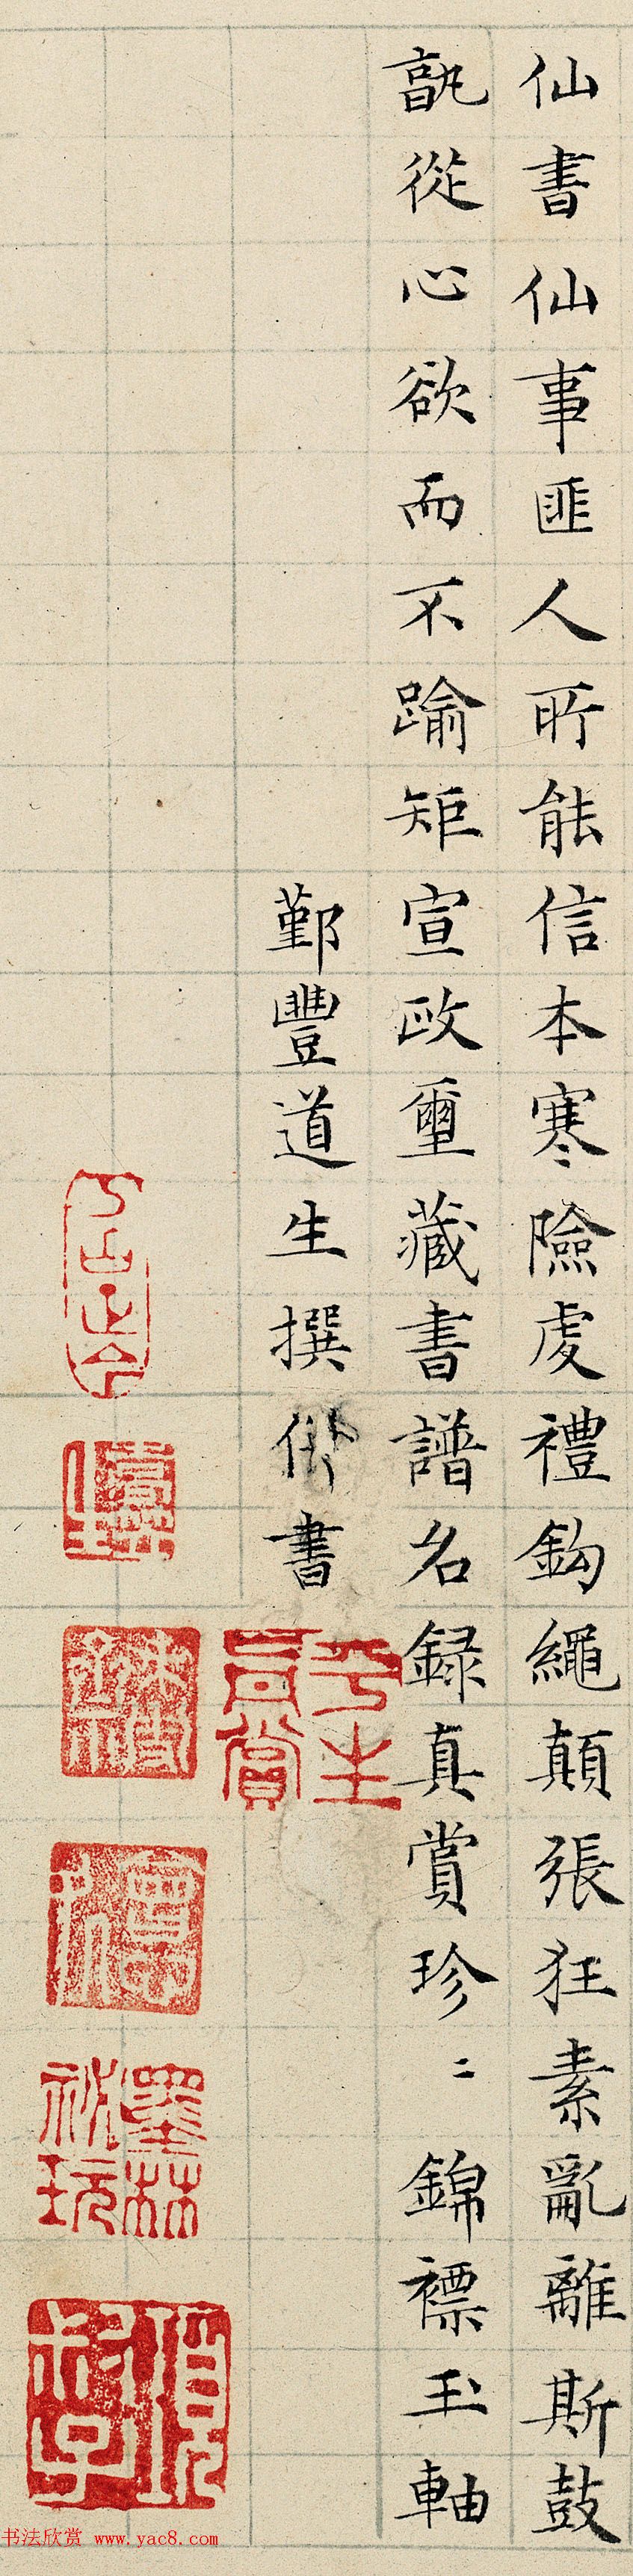 仙書仙事匪人所能信本寒險虔禮鈎繩顛張狂素亂離斯鼓
孰從心欲而不踰矩宣政璽藏書譜名録真賞珍〻錦褾玉軸
鄞豐道生撰併書
平生
真賞
墨林
祕玩
项
子京
书法欣赏 www.yac8.com